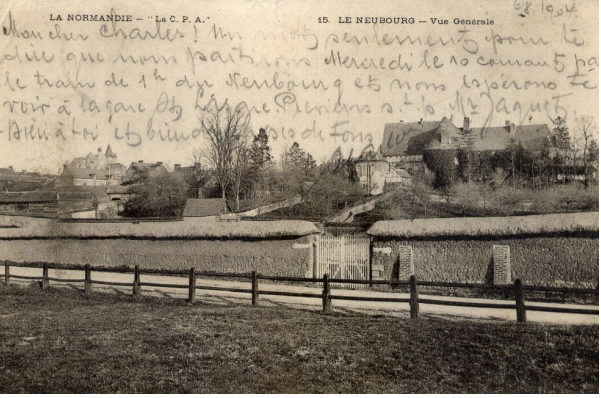 LA NORMANDIE - "La C. P. A."
15. LE NEUBOURG - Vue Générale
6/8 1904
Mon cher Charles! Un mot seulement pour te
dire que nous partirons Mercredi le 10 courant par
le train de 1h du Neubourg et nous espérons te
voir à la gare St Lazare Préviens s.t.p. Mr Jaquet
Bien à toi et